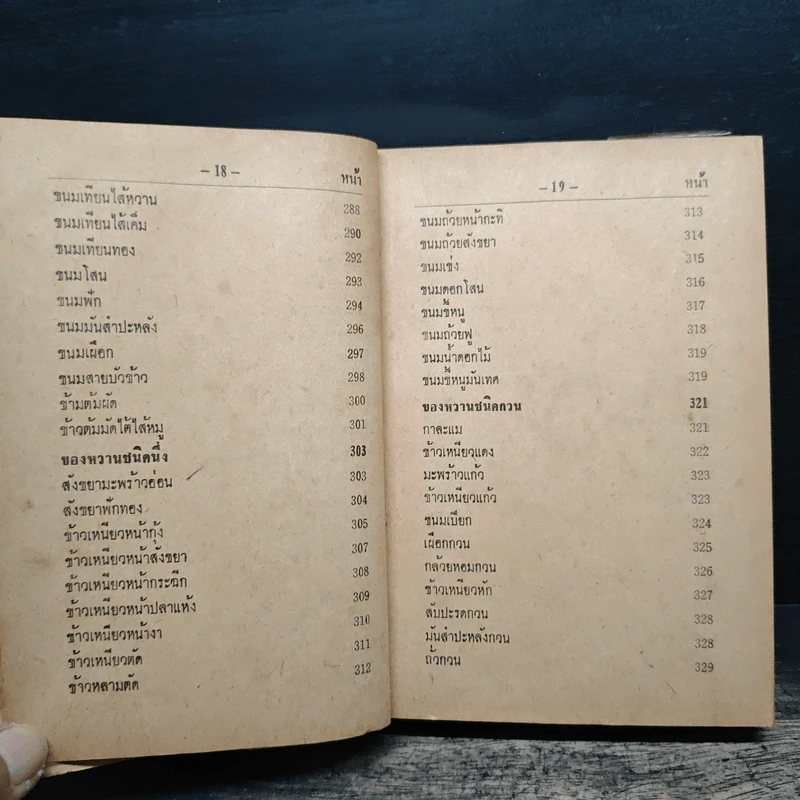 – 18 –
หน้า
ขนมเทียนไส้หวาน 288
ขนมเทียนไส้เค็ม 290
ขนมเทียนทอง 292
ขนมโสน 293
ขนมฟัก 294
ขนมมันสำปะหลัง 296
ขนมเผือก 297
ขนมสายบัวข้าว 298
ข้ามต้มผัด 300
ข้าวต้มมัดไต้ไส้หมู 301
ของหวานชนิดนึ่ง 303
สังขยามะพร้าวอ่อน 303
สังขยาฟักทอง 304
ข้าวเหนียวหน้ากุ้ง 305
ข้าวเหนียวหน้าสังขยา 307
ข้าวเหนียวหน้ากระฉีก 308
ข้าวเหนียวหน้าปลาแห้ง 309
ข้าวเหนียวหน้างา 310
ข้าวเหนียวตัด 311
ข้าวหลามตัด 312
– 19 –
หน้า
ขนมถ้วยหน้ากะทิ 313
ขนมถ้วยสังขยา 314
ขนมเข่ง 315
ขนมดอกโสน 316
ขนมขี้หนู 317
ขนมถ้วยฟู 318
ขนมน้ำดอกไม้ 319
ขนมขี้หนูมันเทศ 319
ของหวานชนิดกวน 321
กาละแม 321
ข้าวเหนียวแดง 322
มะพร้าวแก้ว 323
ข้าวเหนียวแก้ว 323
ขนมเบียก 324
เผือกกวน 325
กล้วยหอมกวน 326
ข้าวเหนียวหัก 327
สับปะรดกวน 328
มันสำปะหลังกวน 328
ถั่วกวน 329